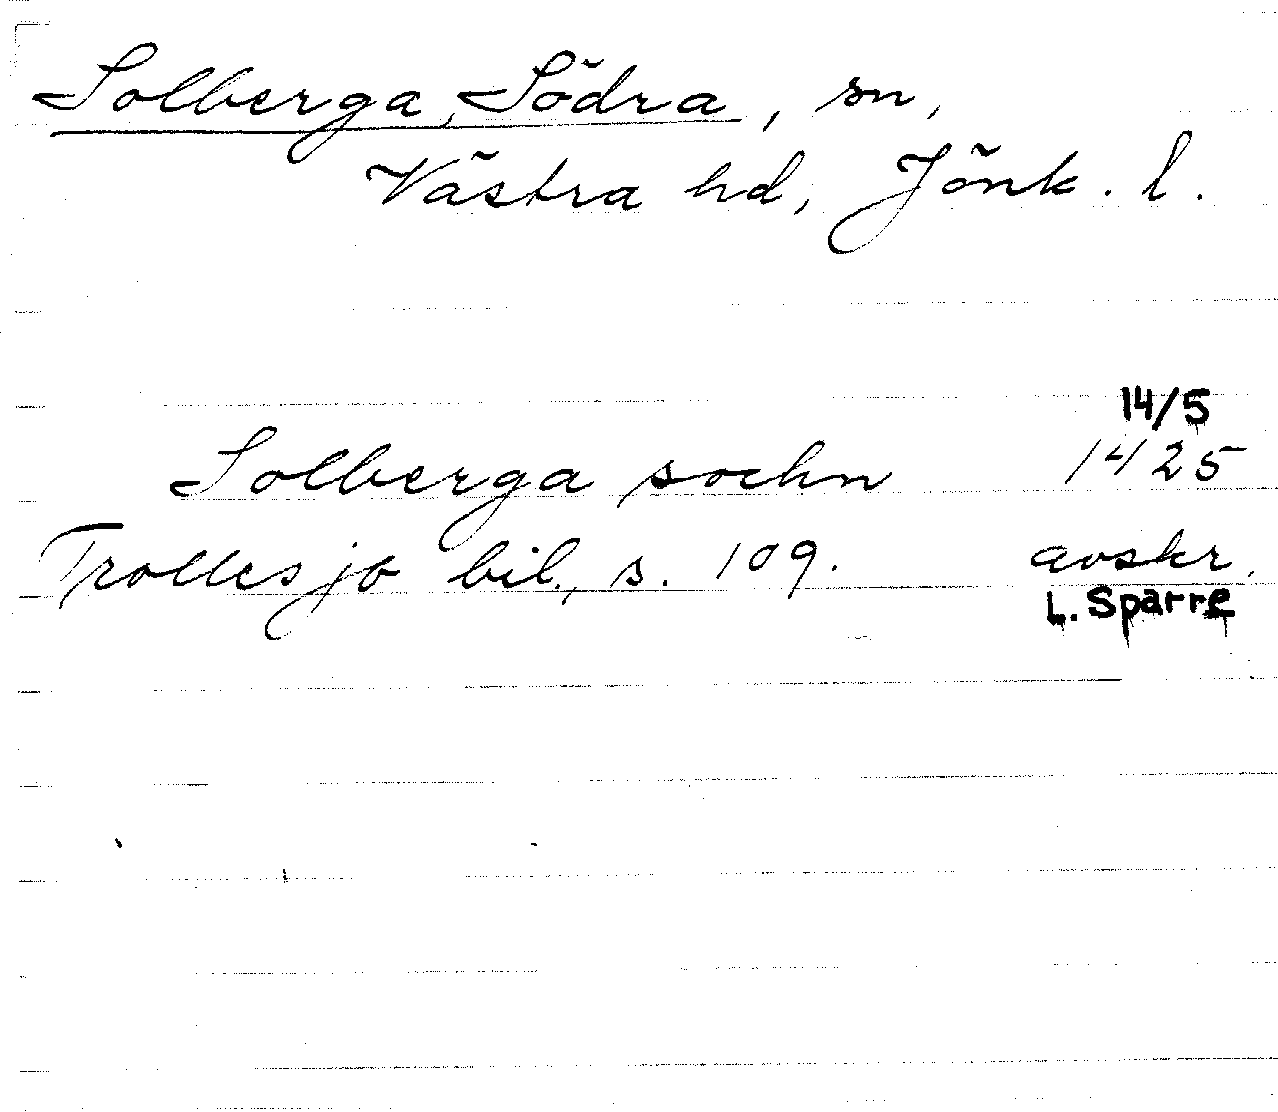 Solberga, Södra, sn,
Västra hd, Jönk. l.
14/5
Solberga sochn 1425
Trollesjö bil., s. 109. avskr.
L. Sparre